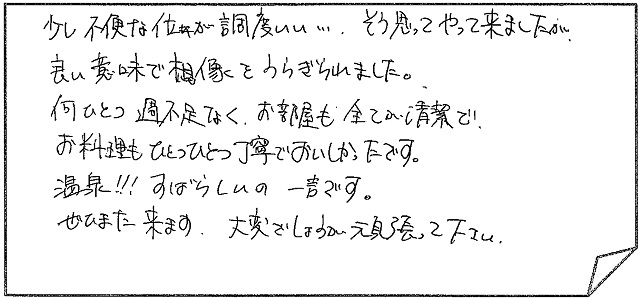 少し不便な位が調度いい…。そう思ってやって来ましたが、
良い意味で想像をうらぎられました。
何ひとつ過不足なく、お部屋も全てが清潔で、
お料理もひとつひとつ丁寧でおいしかったです。
温泉!!! すばらしいの一言です。
ぜひまた来ます。大変でしょうが頑張って下さい。